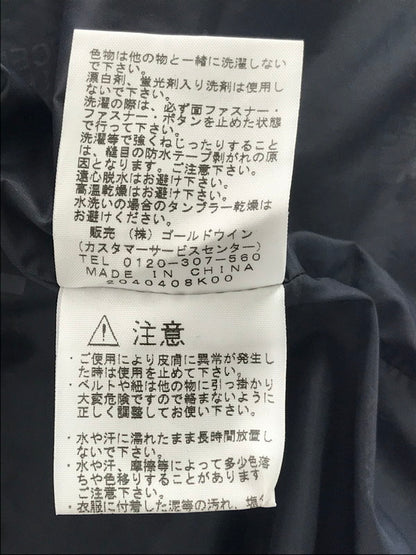 色物は他の物と一緒に洗濯しない
で下さい。
漂白剤、蛍光剤入り洗剤は使用し
ないで下さい。
洗濯の際は、必ず面ファスナー・
ファスナー・ボタンを止めた状態
で行って下さい。
洗濯等で強くねじったりすること
は、縫目の防水テープ剥がれの原
因となります。ご注意下さい。
遠心脱水はお避け下さい。
高温乾燥はお避け下さい。
水洗いの場合のタンブラー乾燥は
お避けください。
販売 (株) ゴールドウイン
(カスタマーサービスセンター)
TEL 0120-307-560
MADE IN CHINA
2040408K00
注意
・ご使用により皮膚に異常が発生し
た時は使用を止めて下さい。
・ベルトや紐は他の物に引っ掛かり
大変危険ですので絡まないように
正しく調整してお使い下さい。
・水や汗に濡れたまま長時間放置し
ないで下さい。
・水や汗、摩擦等によって多少色落
ちや色移りすることがあります
ご注意下さい。
・衣服に付着した泥等の汚れ、塩